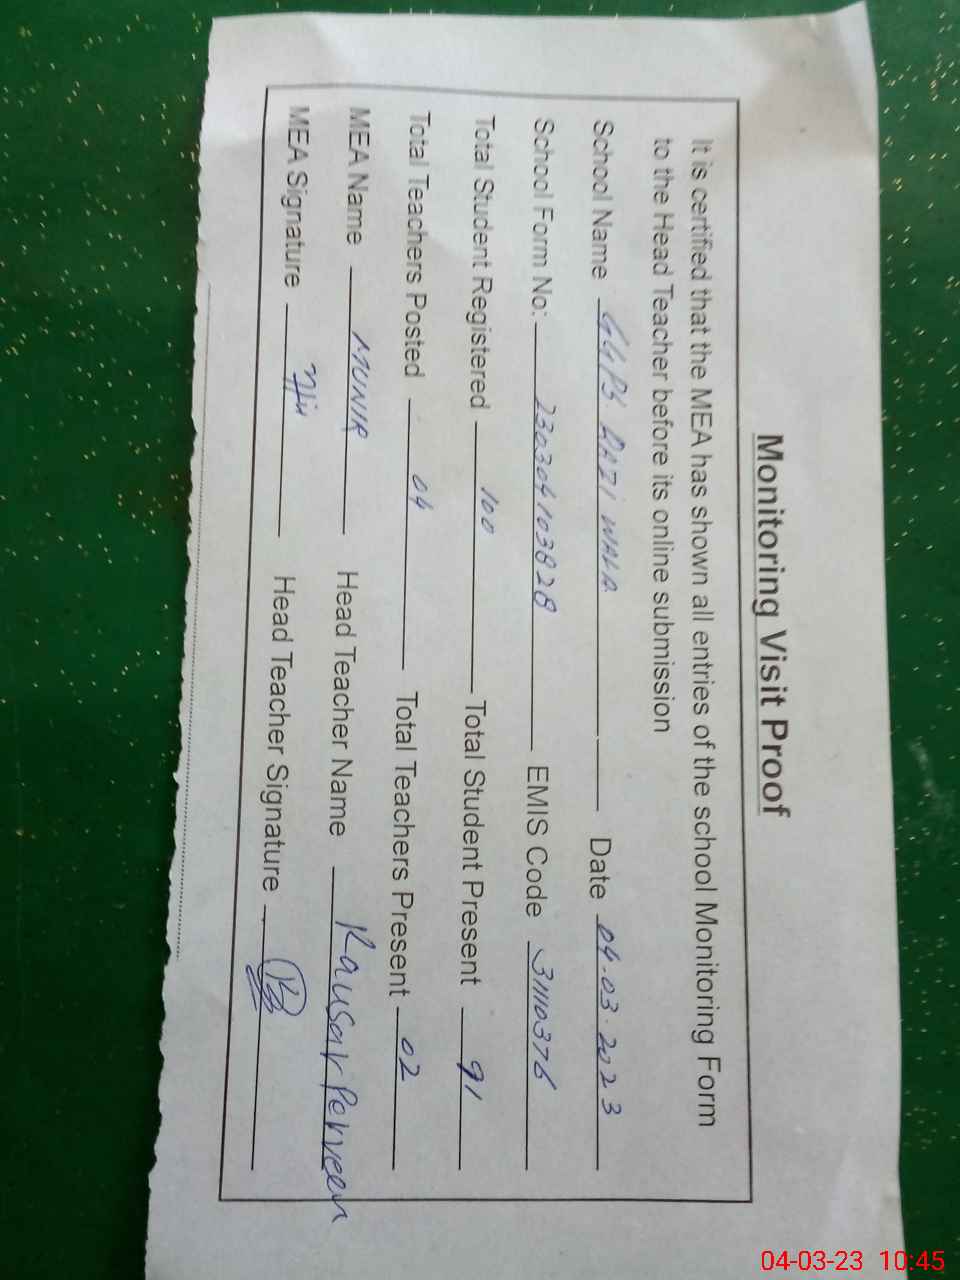 Monitoring Visit Proof
It is certified that the MEA has shown all entries of the school Monitoring Form
to the Head Teacher before its online submission
School Name GGPS. RAZI WALA Date 04.03.2023
School Form No: 230304103828 EMIS Code 31110376
Total Student Registered 100 Total Student Present 91
Total Teachers Posted 04 Total Teachers Present 02
MEA Name MUNIR Head Teacher Name Kausar Perveen
MEA Signature Head Teacher Signature
04-03-23 10:45